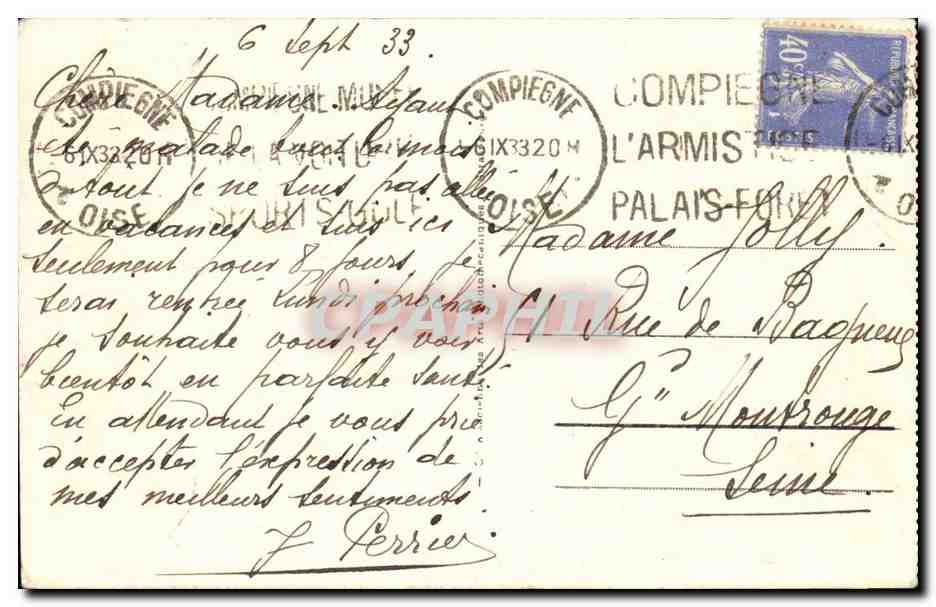 6 Sept 33.
Chère Madame. Ayant
été malade tout le mois
d'Aout je ne suis pas allée
en vacances et suis ici
seulement pour 8 jours je
serai rentrée Lundi prochain
je souhaite vous y voir
bientôt en parfaite santé.
En attendant je vous prie
d'accepter l'expression de
mes meilleurs sentiments
J Perrier.
COMPIEGNE
6 IX 33 20 H
OISE
COMPIEGNE
6 IX 33 20 H
OISE
COMPIEGNE
L'ARMISTICE
PALAIS-FORET
40c
Madame Jolly.
Rue de Bagneux
Gd Montrouge
Seine.
CPAPHIL